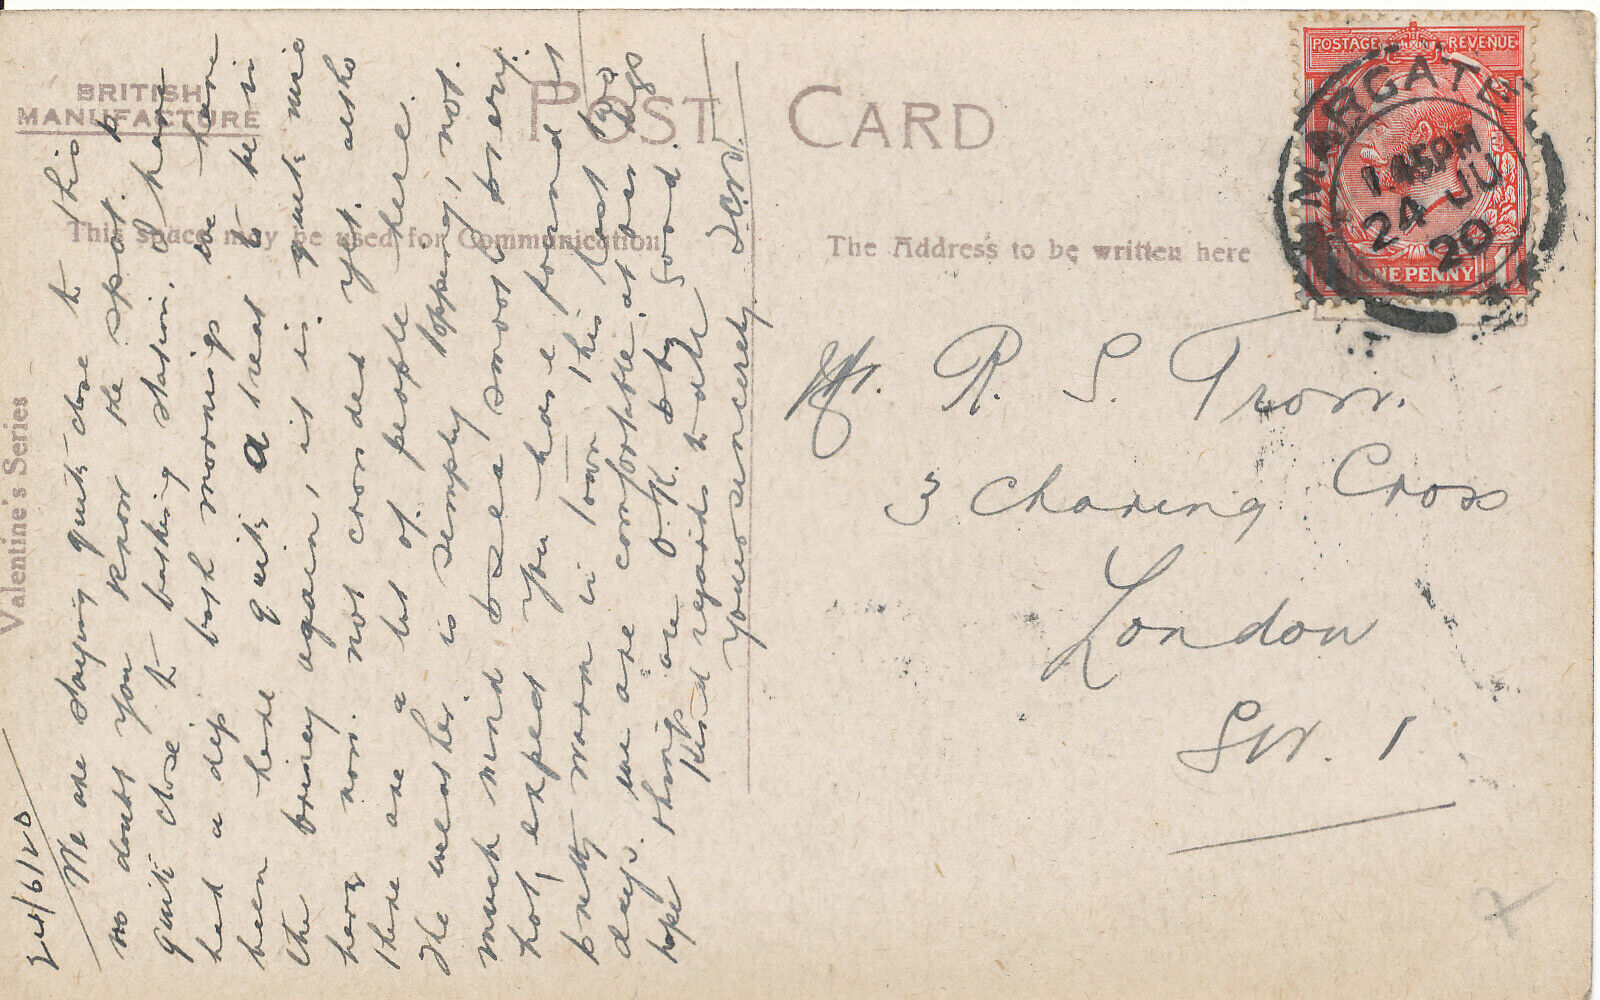 BRITISH
MANUFACTURE
POST CARD
This space may be used for Communication
The Address to be written here
Valentine's Series
POSTAGE REVENUE
ONE PENNY
MARGATE
1.45PM
24 JU
20
24/6/20
We are staying quite close to this
no doubt you know the spot. &
quite close to bathing station. I have
had a dip both mornings we have
been here quite a treat to be in
the briney again, it is quite nice
here now. not crowded yet. altho
there are a lot of people here.
The weather is simply topping, not
much wind & sea smooth & very
hot, expect you have found it
pretty warm in town this last two
days. we are comfortable at our digs
hope things are O.K. & by good.
Kind regards to all
Yours sincerely
Mr. R. S. Trow.
3 Charing Cross
London
SW. 1